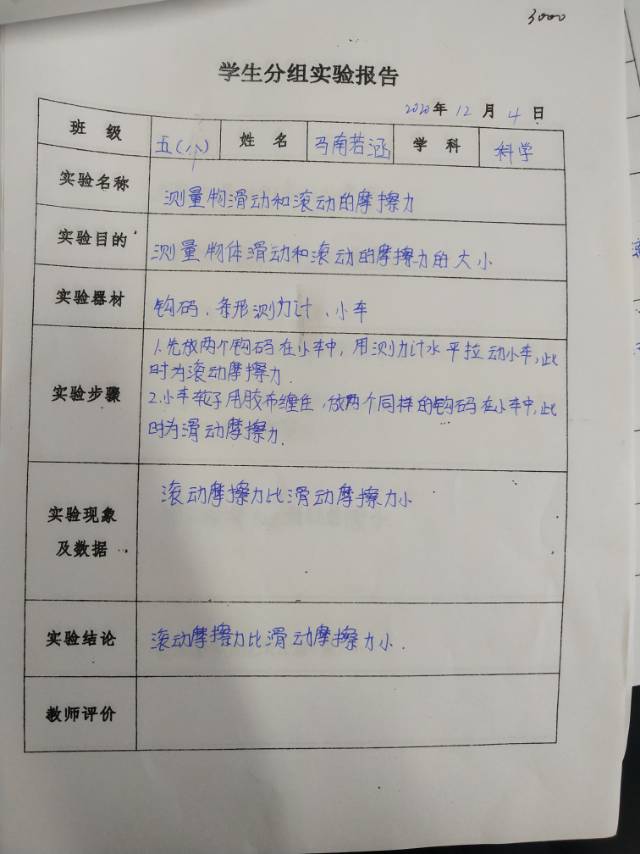 3000
学生分组实验报告
2020年12月4日
班 级 五(八) 姓 名 马南若涵 学 科 科学
实验名称 测量物滑动和滚动的摩擦力
实验目的 测量物体滑动和滚动的摩擦力的大小
实验器材 钩码、条形测力计、小车
1.先放两个钩码在小车中,用测力计水平拉动小车,此
时为滚动摩擦力.
实验步骤
2.小车轮子用胶布缠住,放两个同样的钩码在小车中,此
时为滑动摩擦力.
滚动摩擦力比滑动摩擦力小
实验现象
及数据
实验结论 滚动摩擦力比滑动摩擦力小.
教师评价